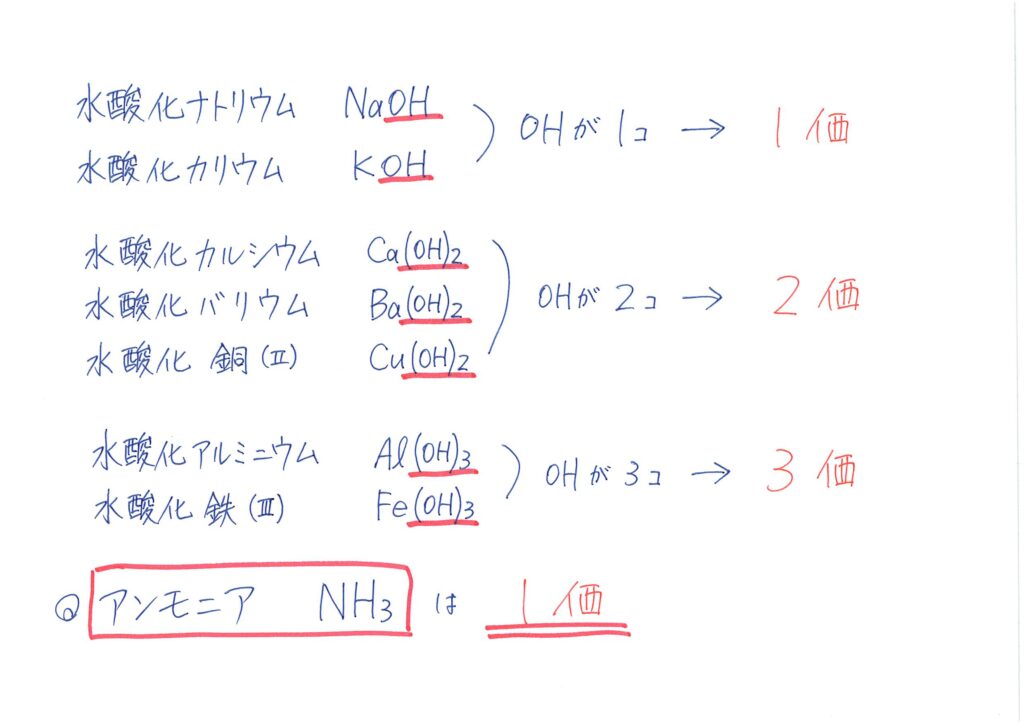 水酸化ナトリウム NaOH
水酸化カリウム KOH
OHが1コ → 1価
水酸化カルシウム Ca(OH)2
水酸化バリウム Ba(OH)2
水酸化銅(Ⅱ) Cu(OH)2
OHが2コ → 2価
水酸化アルミニウム Al(OH)3
水酸化鉄(Ⅲ) Fe(OH)3
OHが3コ → 3価
◎ アンモニア NH3 は 1価